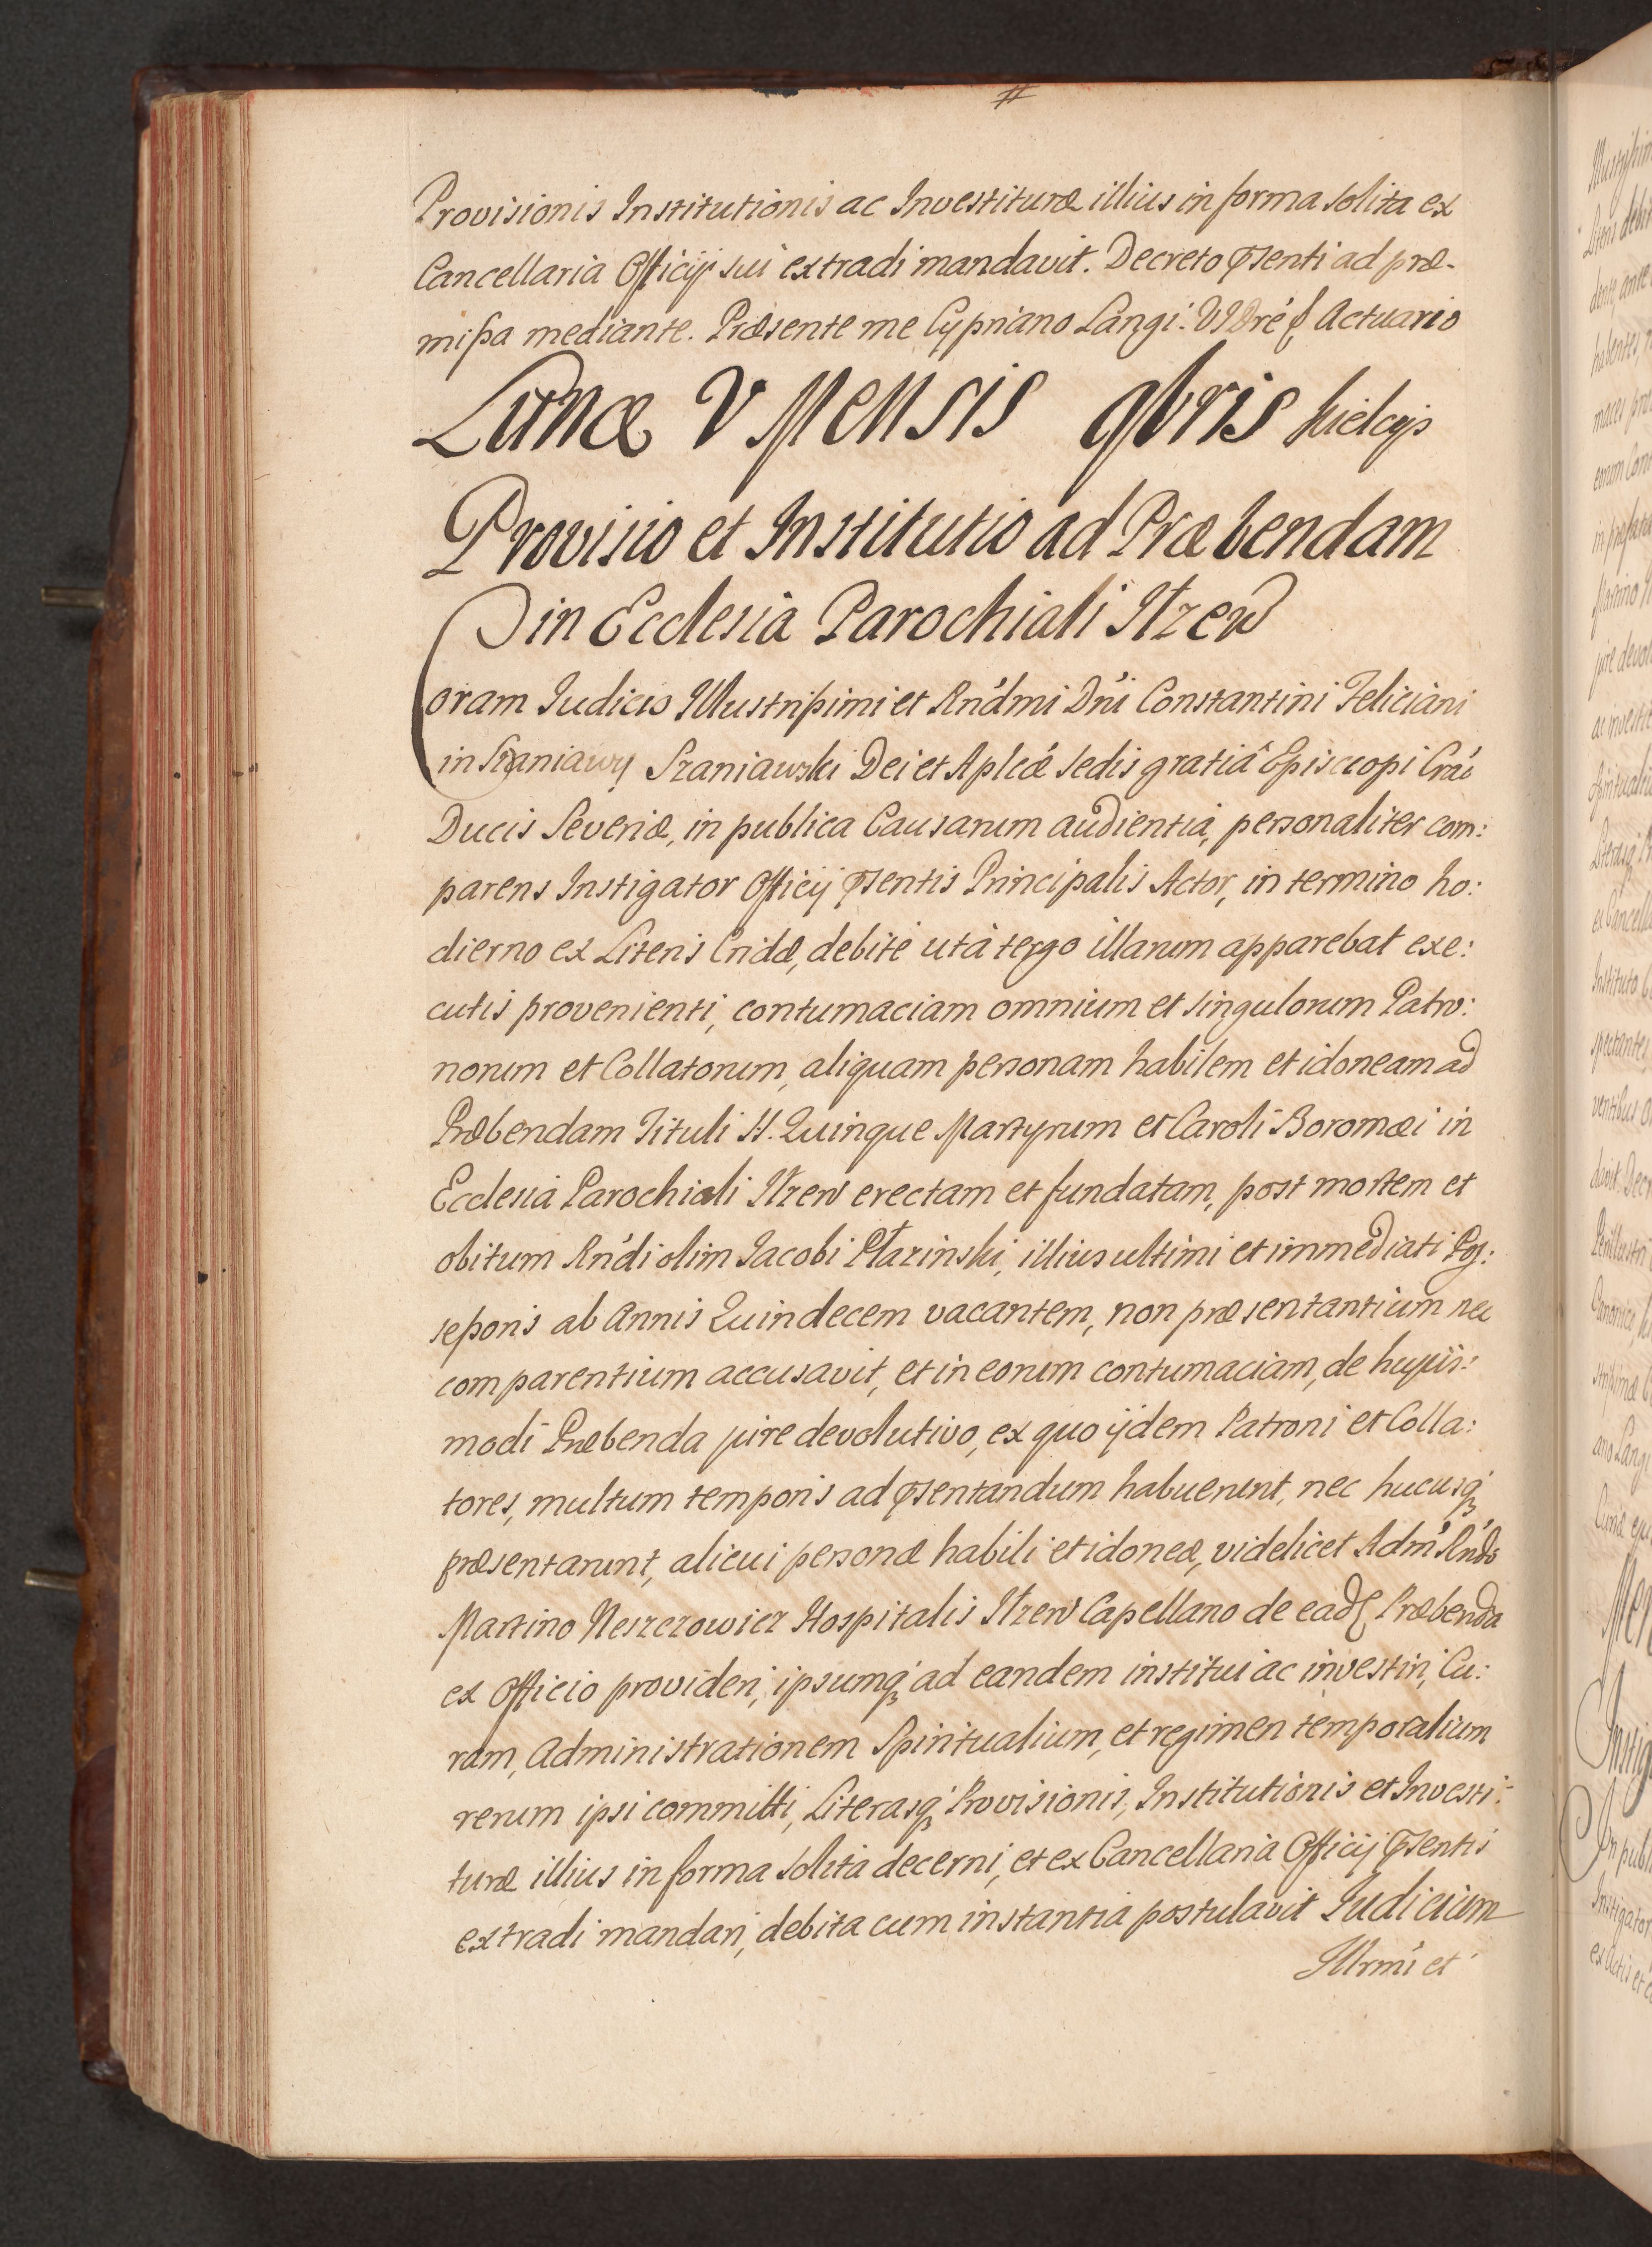 Provisionis Institutionis ac Investituræ illius in forma solita ex
Cancellaria Officij sui extradi mandavit. Decreto pñsenti ad præ-
mißa mediante. Præsente me Cypriano Langi: Actuario
Lunæ V Mensis 9bris Kielcijs
Provisio et Institutio ad Præbendam
in Ecclesia Parochiali Itzen̄
Coram Iudicio Illustrißimi et Rńdmi Dńi Constantini Feliciani
in Szaniawy Szaniawski Dei et Aplicæ sedis gratiâ Episcopi Crac̀
Ducis Severiæ, in publica Causarum audientia, personaliter com:
parens Instigator Officij pñsentis Principalis Actor, in termino ho:
dierno ex Literis Cridæ, debite utà tergo illarum apparebat exe:
cutis provenienti, contumaciam omnium et singulorum Patro:
norum et Collatorum, aliquam personam habilem et idoneam ad
Præbendam Tituli S. Quinque Martyrum et Caroli Boromæi in
Ecclesia Parochiali Itzen̄ erectam et fundatam, post mortem et
obitum Rńdi olim Iacobi Ptazinski, illius ultimi et immediati Pos:
seßoris ab Annis Quindecem vacantem, non præsentantium nec
comparentium accusavit, et in eorum contumaciam, de hujus:
modi Præbenda jure devolutivo, ex quo ijdem Patroni et Colla:
tores, multum temporis ad pñsentandum habuerunt, nec hucusq́
præsentarunt, alicui personæ habili et idoneæ, videlicet Adm̀ Rńdo
Martino Neszczowicz Hospitalis Itzen̄ Capellano de ead Præbenda
ex Officio provideri, ipsumq́ ad eandem institui ac investiri, Cu:
ram, Administrationem Spiritualium, et regimen temporalium
rerum ipsi committi, Literasq́ Provisionis, Institutionis et Investi:
turæ illius in forma solita decerni, et ex Cancellaria Officij pñsentis
extradi mandari, debita cum instantia postulavit Iudicium
Illrmi et